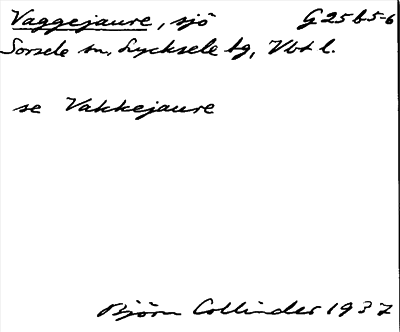 Vaggejaure, sjö G25b5-6
Sorsele sn, Lycksele tg, Vbt l.
se Vakkejaure
Björn Collinder 1937